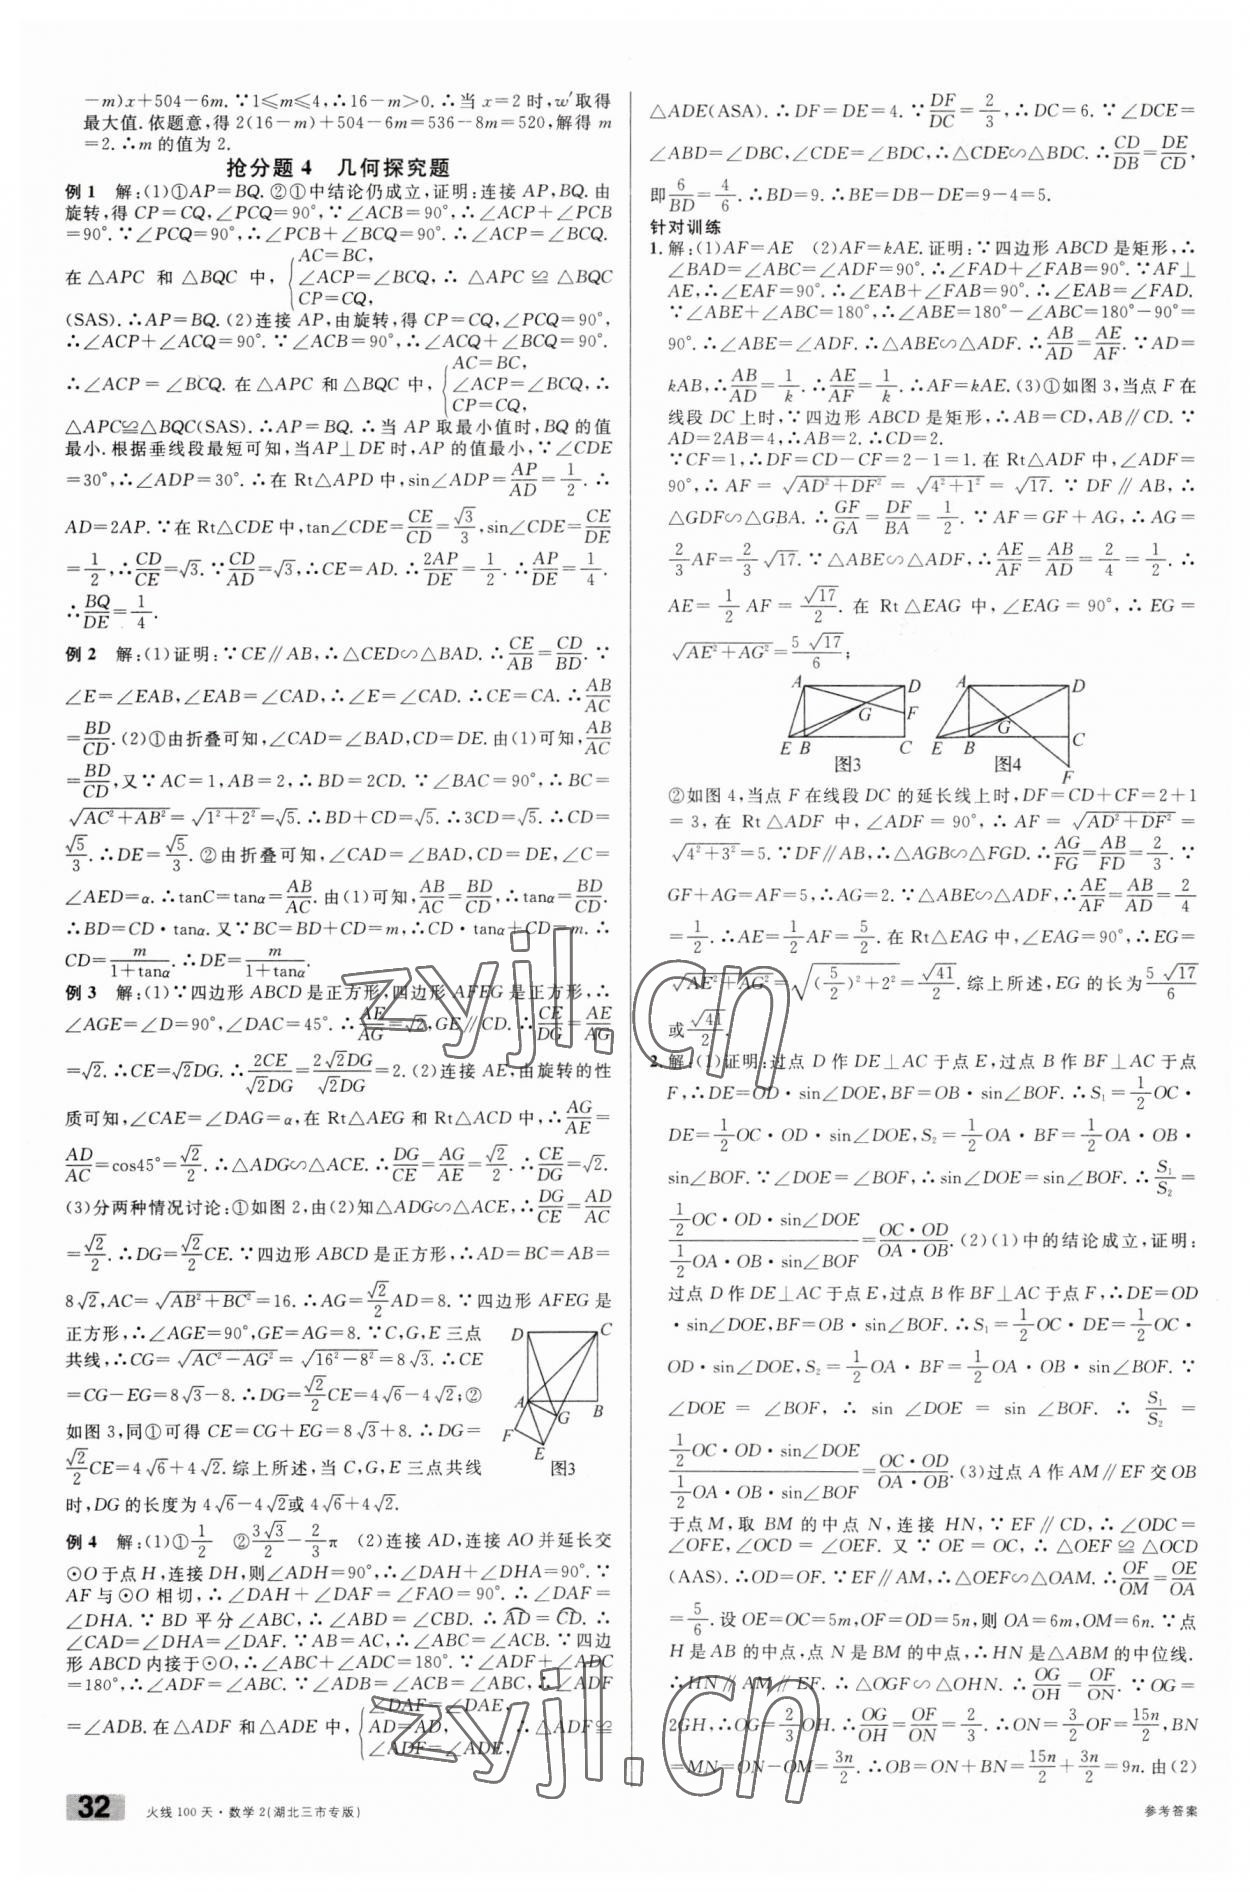 -m)x+504-6m.∵1≤m≤4,∴16-m>0.∴当 x=2 时,w′取得
最大值.依题意,得 2(16-m)+504-6m=536-8m=520,解得 m
=2.∴m 的值为 2.
抢分题 4 几何探究题
例 1 解:(1)①AP=BQ.②①中结论仍成立,证明:连接 AP,BQ.由
旋转,得 CP=CQ,∠PCQ=90°,∵∠ACB=90°,∴∠ACP+∠PCB
=90°.∵∠PCQ=90°,∴∠PCB+∠BCQ=90°.∴∠ACP=∠BCQ.
在△APC 和 △BQC 中,{AC=BC, ∠ACP=∠BCQ, CP=CQ, ∴△APC≌△BQC
(SAS).∴AP=BQ.(2)连接 AP,由旋转,得 CP=CQ,∠PCQ=90°,
∴∠ACP+∠ACQ=90°.∵∠ACB=90°,∴∠ACQ+∠BCQ=90°.
∴∠ACP=∠BCQ.在△APC 和△BQC 中,{AC=BC, ∠ACP=∠BCQ, CP=CQ, ∴
△APC≌△BQC(SAS).∴AP=BQ.∴当 AP 取最小值时,BQ 的值
最小.根据垂线段最短可知,当AP⊥DE 时,AP 的值最小,∵∠CDE
=30°,∴∠ADP=30°.∴在 Rt△APD 中,sin∠ADP=AP/AD=1/2.∴
AD=2AP.∵在 Rt△CDE 中,tan∠CDE=CE/CD=√3/3,sin∠CDE=CE/DE
=1/2,∴CD/CE=√3.∵CD/AD=√3,∴CE=AD.∴2AP/DE=1/2.∴AP/DE=1/4.
∴BQ/DE=1/4.
例 2 解:(1)证明:∵CE∥AB,∴△CED∽△BAD.∴CE/AB=CD/BD.∵
∠E=∠EAB,∠EAB=∠CAD,∴∠E=∠CAD.∴CE=CA.∴AB/AC
=BD/CD.(2)①由折叠可知,∠CAD=∠BAD,CD=DE.由(1)可知,AB/AC
=BD/CD,又∵AC=1,AB=2,∴BD=2CD.∵∠BAC=90°,∴BC=
√(AC²+AB²)=√(1²+2²)=√5.∴BD+CD=√5.∴3CD=√5.∴CD=
√5/3.∴DE=√5/3.②由折叠可知,∠CAD=∠BAD,CD=DE,∠C=
∠AED=α.∴tanC=tanα=AB/AC.由(1)可知,AB/AC=BD/CD,∴tanα=BD/CD.
∴BD=CD·tanα.又∵BC=BD+CD=m,∴CD·tanα+CD=m.∴
CD=m/(1+tanα).∴DE=m/(1+tanα).
例 3 解:(1)∵四边形 ABCD 是正方形,四边形 AFEG 是正方形,∴
∠AGE=∠D=90°,∠DAC=45°.∴AE/AG=√2,GE∥CD.∴CE/DG=AE/AG
=√2.∴CE=√2DG.∴2CE/√2DG=2√2DG/√2DG=2.(2)连接 AE,由旋转的性
质可知,∠CAE=∠DAG=α,在 Rt△AEG 和 Rt△ACD 中,∴AG/AE=
AD/AC=cos45°=√2/2.∴△ADG∽△ACE.∴DG/CE=AG/AE=√2/2.∴CE/DG=√2.
(3)分两种情况讨论:①如图 2,由(2)知△ADG∽△ACE,∴DG/CE=AD/AC
=√2/2.∴DG=√2/2CE.∵四边形 ABCD 是正方形,∴AD=BC=AB=
8√2,AC=√(AB²+BC²)=16.∴AG=√2/2AD=8.∵四边形 AFEG 是
正方形,∴∠AGE=90°,GE=AG=8.∵C,G,E 三点
共线,∴CG=√(AC²-AG²)=√(16²-8²)=8√3.∴CE
=CG-EG=8√3-8.∴DG=√2/2CE=4√6-4√2;②
如图 3,同①可得 CE=CG+EG=8√3+8.∴DG=
√2/2CE=4√6+4√2.综上所述,当 C,G,E 三点共线
时,DG 的长度为 4√6-4√2或 4√6+4√2.
D C A B G F E
图3
例 4 解:(1)①1/2 ②3√3/2-2/3π (2)连接 AD,连接 AO 并延长交
⊙O 于点 H,连接 DH,则∠ADH=90°,∴∠DAH+∠DHA=90°.∵
AF 与⊙O 相切,∴∠DAH+∠DAF=∠FAO=90°.∴∠DAF=
∠DHA.∵BD 平分∠ABC,∴∠ABD=∠CBD.∴AD=CD.∴
∠CAD=∠DHA=∠DAF.∵AB=AC,∴∠ABC=∠ACB.∵四边
形 ABCD 内接于⊙O,∴∠ABC+∠ADC=180°.∵∠ADF+∠ADC
=180°,∴∠ADF=∠ABC.∵∠ADB=∠ACB=∠ABC,∴∠ADF
=∠ADB.在△ADF 和△ADE 中,{∠DAF=∠DAE, AD=AD, ∠ADF=∠ADE, ∴△ADF≌
△ADE(ASA).∴DF=DE=4.∵DF/DC=2/3,∴DC=6.∵∠DCE=
∠ABD=∠DBC,∠CDE=∠BDC,∴△CDE∽△BDC.∴CD/DB=DE/CD,
即6/BD=4/6.∴BD=9.∴BE=DB-DE=9-4=5.
针对训练
1.解:(1)AF=AE (2)AF=kAE.证明:∵四边形 ABCD 是矩形,∴
∠BAD=∠ABC=∠ADF=90°.∴∠FAD+∠FAB=90°.∵AF⊥
AE,∴∠EAF=90°.∴∠EAB+∠FAB=90°.∴∠EAB=∠FAD.
∵∠ABE+∠ABC=180°,∴∠ABE=180°-∠ABC=180°-90°=
90°.∴∠ABE=∠ADF.∴△ABE∽△ADF.∴AB/AD=AE/AF.∵AD=
kAB,∴AB/AD=1/k.∴AE/AF=1/k.∴AF=kAE.(3)①如图 3,当点 F 在
线段 DC 上时,∵四边形 ABCD 是矩形,∴AB=CD,AB∥CD.∵
AD=2AB=4,∴AB=2.∴CD=2.
∵CF=1,∴DF=CD-CF=2-1=1.在 Rt△ADF 中,∠ADF=
90°,∴AF=√(AD²+DF²)=√(4²+1²)=√17.∵DF∥AB,∴
△GDF∽△GBA.∴GF/GA=DF/BA=1/2.∵AF=GF+AG,∴AG=
2/3AF=2/3√17.∵△ABE∽△ADF,∴AE/AF=AB/AD=2/4=1/2.∴
AE=1/2AF=√17/2.在 Rt△EAG 中,∠EAG=90°,∴EG=
√(AE²+AG²)=5√17/6;
A D G F E B C
图3
A D G E B C F
图4
②如图 4,当点 F 在线段 DC 的延长线上时,DF=CD+CF=2+1
=3,在 Rt△ADF 中,∠ADF=90°,∴AF=√(AD²+DF²)=
√(4²+3²)=5.∵DF∥AB,∴△AGB∽△FGD.∴AG/FG=AB/FD=2/3.∵
GF+AG=AF=5,∴AG=2.∵△ABE∽△ADF,∴AE/AF=AB/AD=2/4
=1/2.∴AE=1/2AF=5/2.在 Rt△EAG 中,∠EAG=90°,∴EG=
√(AE²+AG²)=√((5/2)²+2²)=√41/2.综上所述,EG 的长为5√17/6
或√41/2.
2.解:(1)证明:过点 D 作 DE⊥AC 于点 E,过点 B 作 BF⊥AC 于点
F,∴DE=OD·sin∠DOE,BF=OB·sin∠BOF.∴S₁=1/2OC·
DE=1/2OC·OD·sin∠DOE,S₂=1/2OA·BF=1/2OA·OB·
sin∠BOF.∵∠DOE=∠BOF,∴sin∠DOE=sin∠BOF.∴S₁/S₂=
(1/2OC·OD·sin∠DOE)/(1/2OA·OB·sin∠BOF)=(OC·OD)/(OA·OB).(2)(1)中的结论成立,证明:
过点 D 作 DE⊥AC 于点 E,过点 B 作 BF⊥AC 于点 F,∴DE=OD
·sin∠DOE,BF=OB·sin∠BOF.∴S₁=1/2OC·DE=1/2OC·
OD·sin∠DOE,S₂=1/2OA·BF=1/2OA·OB·sin∠BOF.∵
∠DOE=∠BOF,∴sin∠DOE=sin∠BOF.∴S₁/S₂=
(1/2OC·OD·sin∠DOE)/(1/2OA·OB·sin∠BOF)=(OC·OD)/(OA·OB).(3)过点 A 作 AM∥EF 交 OB
于点 M,取 BM 的中点 N,连接 HN,∵EF∥CD,∴∠ODC=
∠OFE,∠OCD=∠OEF.又∵OE=OC,∴△OEF≌△OCD
(AAS).∴OD=OF.∵EF∥AM,∴△OEF∽△OAM.∴OF/OM=OE/OA
=5/6.设 OE=OC=5m,OF=OD=5n,则 OA=6m,OM=6n.∵点
H 是 AB 的中点,点 N 是 BM 的中点,∴HN 是△ABM 的中位线.
∴HN∥AM∥EF.∴△OGF∽△OHN.∴OG/OH=OF/ON.∵OG=
2GH,∴OG=2/3OH.∴OG/OH=OF/ON=2/3.∴ON=3/2OF=15n/2,BN
=MN=ON-OM=3n/2.∴OB=ON+BN=15n/2+3n/2=9n.由(2)
32 火线 100 天·数学 2(湖北三市专版)
参考答案
zyjl.cn
zyjl.cn